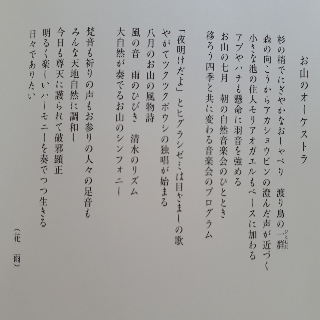 お山のオーケストラ
杉の梢でにぎやかなおしゃべり　渡り鳥の一群
森の向こうからアカショウビンの澄んだ声が近づく
小さな池の住人モリアオガエルもベースに加わる
アブやハチも懸命に羽音を強める
お山の七月　朝の自然音楽会のひととき
移ろう四季と共に変わる音楽会のプログラム
「夜明けだよ」とヒグラシゼミは目ざましの歌
やがてツクツクボウシの独唱が始まる
八月のお山の風物詩
風の音　雨のひびき　清水のリズム
大自然が奏でるお山のシンフォニー
梵音も祈りの声もお参りの人々の足音も
みんな天地自然に調和し
今日も尊天に護られて破邪顕正
明るく楽しいハーモニーを奏でつつ生きる
日々でありたい
（花　雨）